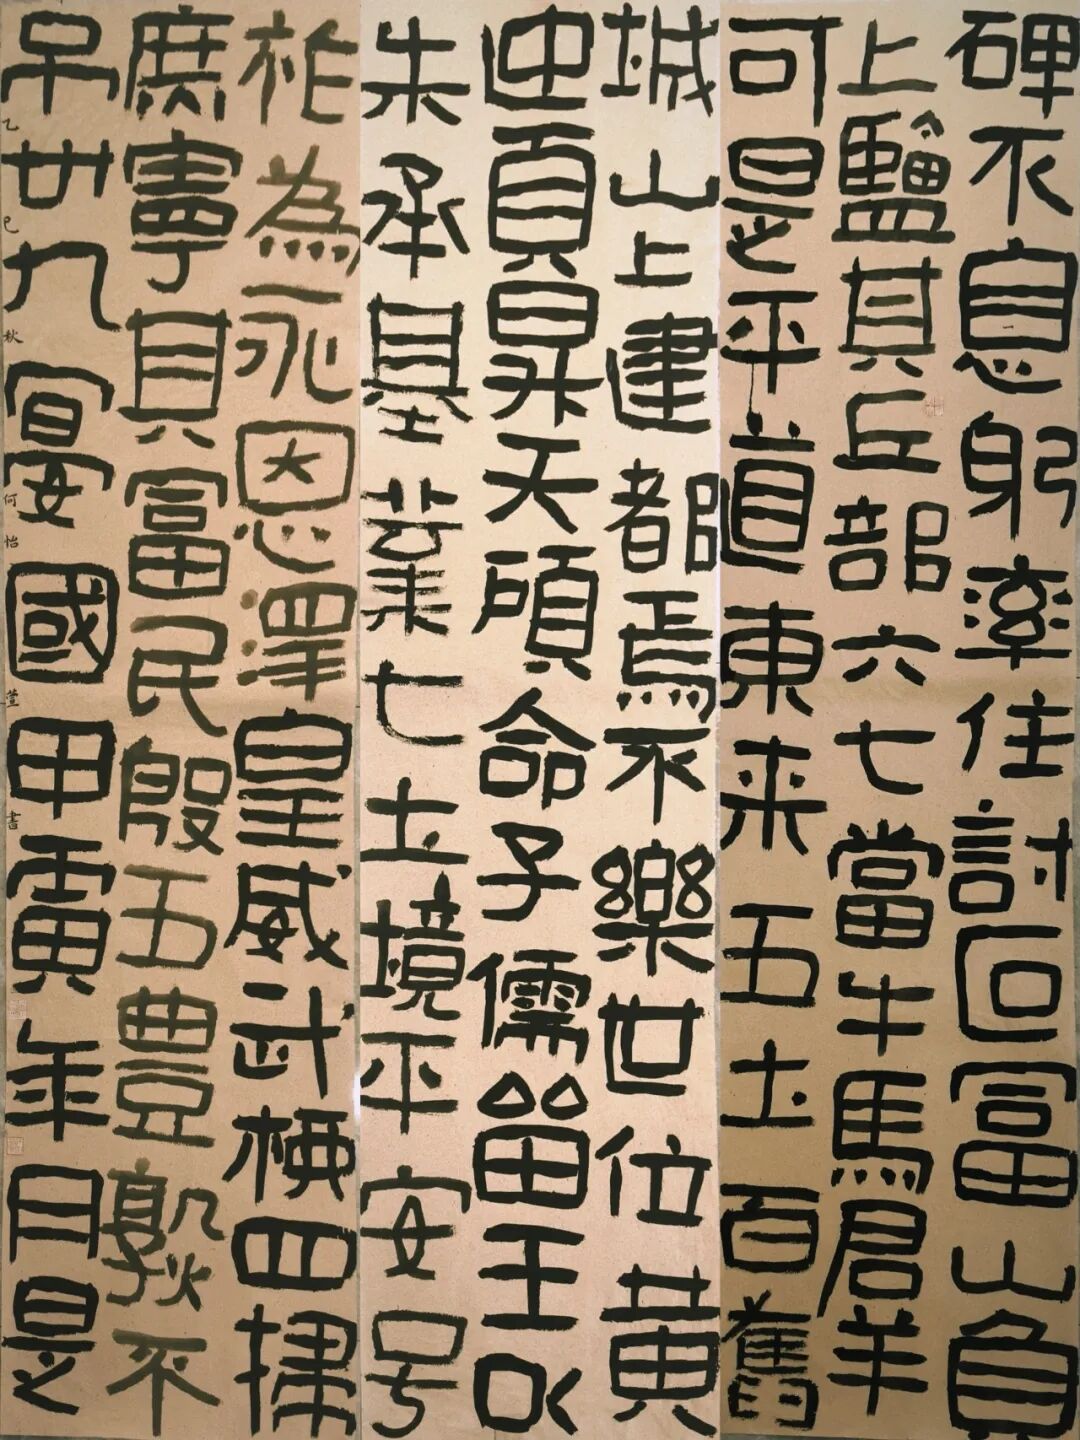 碑不息躬率住討回富山負
上鹽其丘部六七當牛馬君羊
可是平道東来五土百舊
城山上建都焉不樂世位黄
迎頁昇天碩命子儒留王以
朱承基業七土境平安号
祚為永恩澤皇威武栖四
廣寧其富民殷五豊不
吊卅九宴國甲寅年月是
乙巳秋何怡萱書